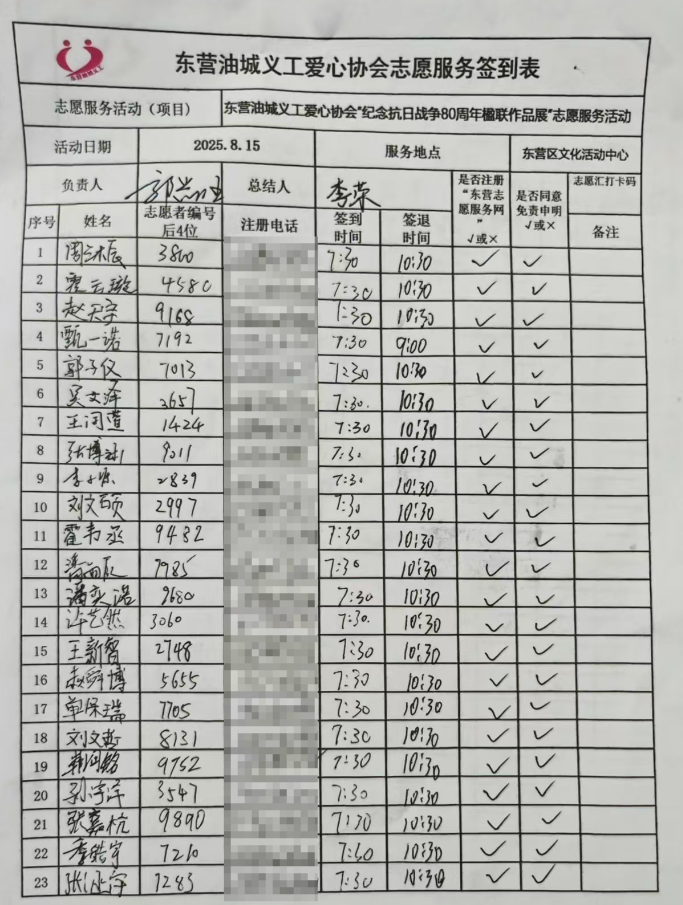 东营油城义工
东营油城义工爱心协会志愿服务签到表
志愿服务活动（项目） 东营油城义工爱心协会“纪念抗日战争80周年楹联作品展”志愿服务活动
活动日期 2025.8.15 服务地点 东营区文化活动中心
负责人 总结人 李荣 是否注册“东营志愿服务网” √或× 是否同意免责申明 √或× 志愿汇打卡码
序号 姓名 志愿者编号后4位 注册电话 签到时间 签退时间 备注
1 3860 7:30 10:30 ✓ ✓
2 霍云璇 4580 7:30 10:30 ✓ ✓
3 赵天宇 9168 1:30 10:30 ✓ ✓
4 甄一诺 7192 7:30 9:00 ✓ ✓
5 郭子仪 7013 7:30 10:30 ✓ ✓
6 吴文泽 2657 7:30. 10:30 ✓ ✓
7 王闰萱 1424 7:30 10:30 ✓ ✓
8 张博 9011 7:30 10:30 ✓ ✓
9 2839 7:30 10:30 ✓ ✓
10 刘文硕 2997 7:30 10:30 ✓ ✓
11 霍韦丞 9432 7:30 10:30 ✓ ✓
12 7985 7:30 10:30 ✓ ✓
13 潘奕诺 9680 7:30 10:30 ✓ ✓
14 许艺然 3060 7:30. 10:30 ✓ ✓
15 王新智 2748 7:30 10:30 ✓ ✓
16 赵舜博 5655 7:30 10:30 ✓ ✓
17 单保瑞 7705 7:30 10:30 ✓ ✓
18 刘文哲 8131 7:30 10:30 ✓ ✓
19 9752 7:30 10:30 ✓ ✓
20 孙宇泽 3547 7:30 10:30 ✓ ✓
21 张嘉杭 9890 7:30 10:30 ✓ ✓
22 7210 7:30 10:30 ✓ ✓
23 7283 7:30 10:30 ✓ ✓